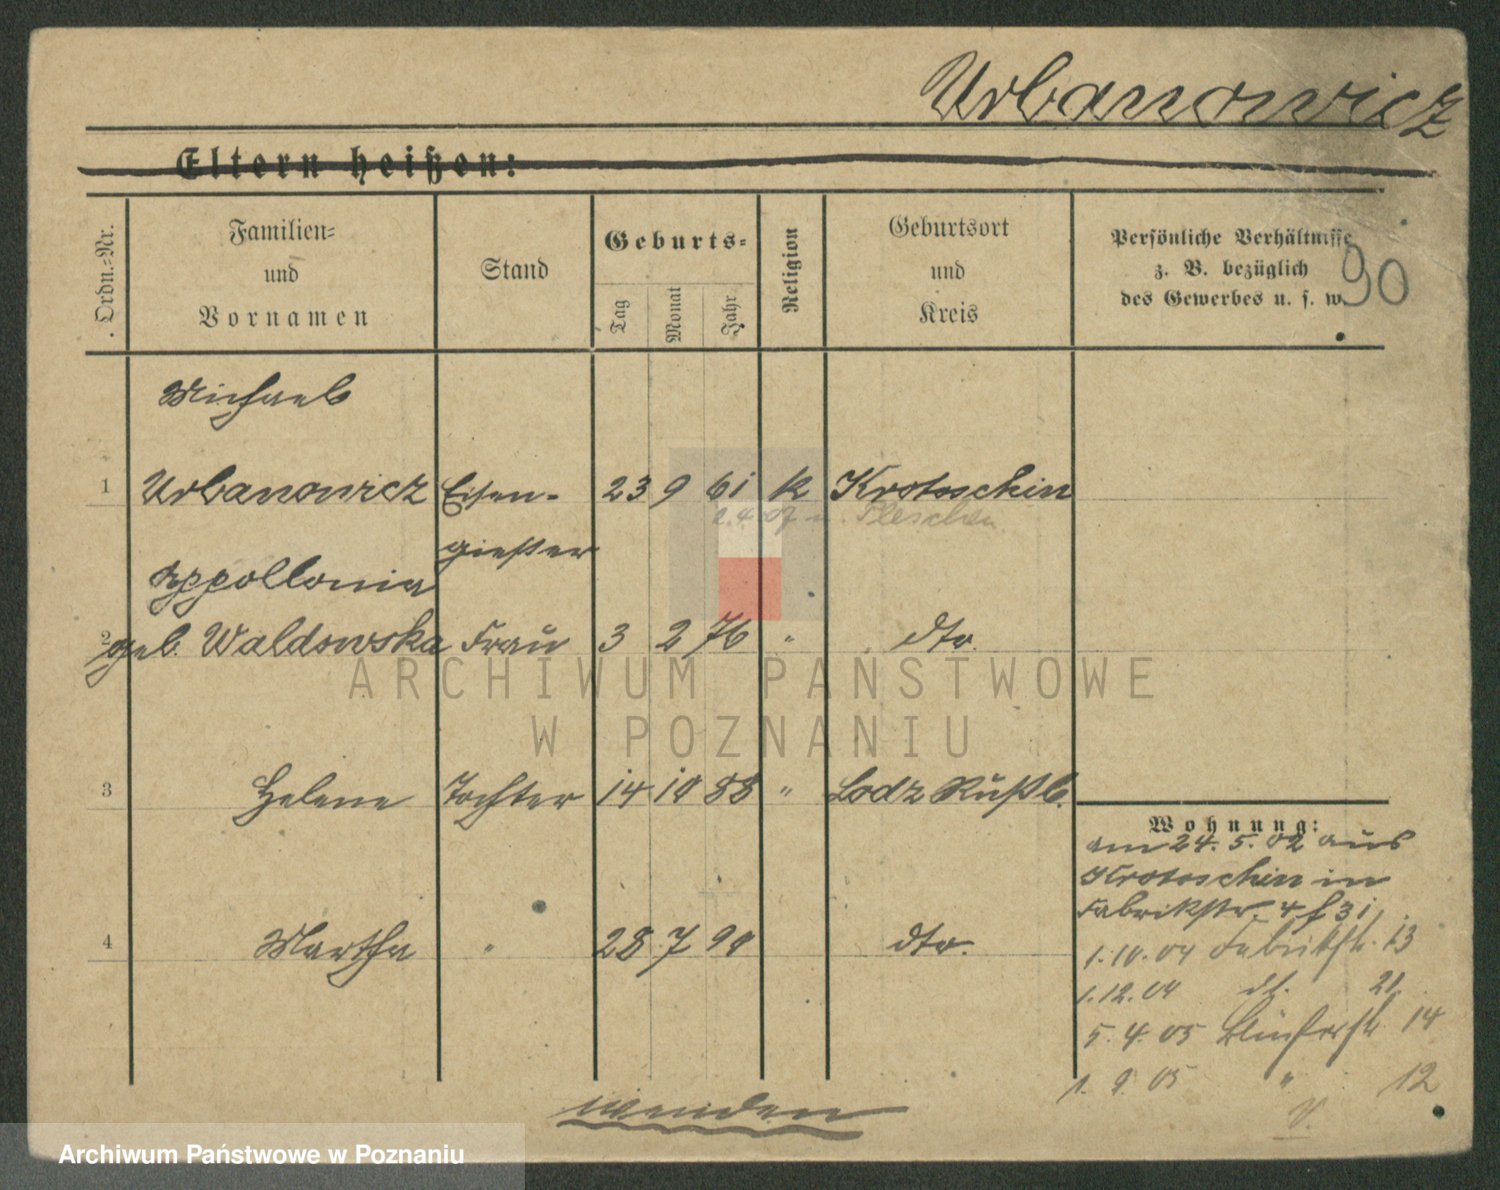 Urbanowicz
Eltern heißen:
Ordn.-Nr.
Familien-
und
Vornamen
Stand
Geburts-
Tag
Monat
Jahr
Religion
Geburtsort
und
Kreis
Persönliche Verhältnisse
z. B. bezüglich
des Gewerbes u. s. w.
90
Michael
1 Urbanowicz Eisen- 23 9 61 k Krotoschin
2.4.07 n. Pleschen
gießer
Appollonia
2 geb. Waldowska Frau 3 2 76 " dto.
3 Helene Tochter 14 10 88 " Lodz Rußl.
4 Martha " 28 7 90 dto.
Wohnung:
am 24. 5. 02 aus
Krotoschin in
Fabrikstr. 4 f 31.
1.10.04 Fabrikstr. 13
1.12.04 dt. 21.
5.4.05 Blücherstr. 14
1. 9. 05 " 12
V.
wenden
ARCHIWUM PAŃSTWOWE
W POZNANIU
Archiwum Państwowe w Poznaniu